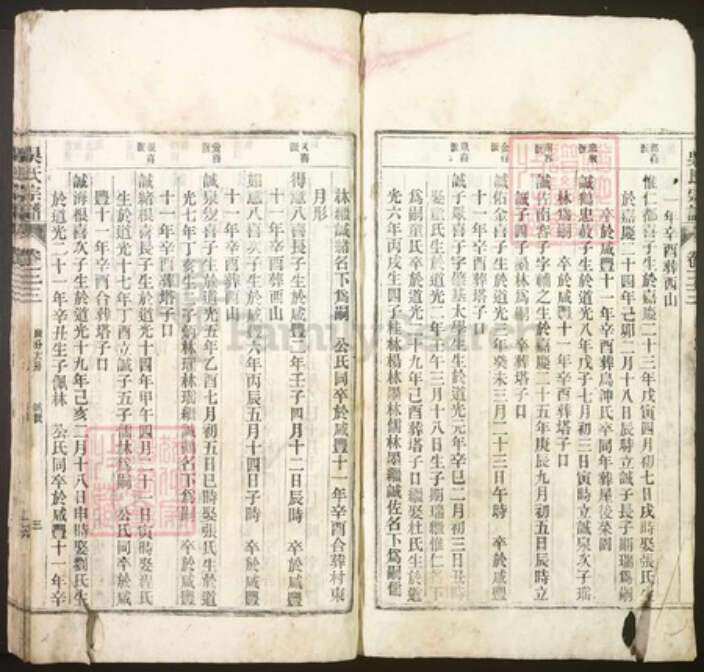 一年辛酉葬西山
惟仁都喜子生於嘉慶二十三年戊寅四月初七日戌時娶張氏生
於嘉慶二十四年己卯二月十八日辰時立誠子長子炳瑞為嗣
卒於咸豐十一年辛酉葬鳥沖氏卒同年葬屋後菜園
誠鶴忠敦子生於道光八年戊子七月初三日寅時立誠泉次子瑞
林為嗣 卒於咸豐十一年辛酉葬塔子口
誠佐南喜子字輔之生於嘉慶二十五年庚辰九月初五日辰時立
誠子四子墨林為嗣 卒葬塔子口
誠佑金喜子生於道光 年癸未三月二十三日午時 卒於咸豐
十一年辛酉葬塔子口
誠子嚴喜子字肇基太學生生於道光元年辛巳二月初三日丑時
娶童氏生於道光二年壬午三月十八日生子炳瑞繼惟仁名下
為嗣童氏卒於道光二十九年己酉葬塔子口繼娶杜氏生於道
光六年丙戌生四子桂林楊林墨林儒林墨繼誠佐名下為嗣儒
林繼誠緒名下為嗣 公氏同卒於咸豐十一年辛酉合葬村東
月形
得應八喜長子生於咸豐二年壬子四月十二日辰時 卒於咸豐
十一年辛酉葬西山
如應八喜次子生於咸豐六年丙辰五月十四日子時 卒於咸豐
十一年辛酉葬西山
誠泉發喜子生於道光五年乙酉七月初五日巳時娶張氏生於道
光七年丁亥生 子炳林瑞林瑞繼誠鶴名下為嗣 卒於咸豐
十一年辛酉葬塔子口
誠緒根喜長子生於道光十四年甲午四月二十二日寅時娶程氏
生於道光十七年丁酉立誠子五子儒林為嗣 公氏同卒於咸
豐十一年辛酉合葬塔子口
誠海根喜次子生於道光十九年己亥二月十八日申時娶劉氏生
於道光二十一年辛丑生子佩林 公氏同卒於咸豐十一年辛
吳氏宗譜
卷二三
三